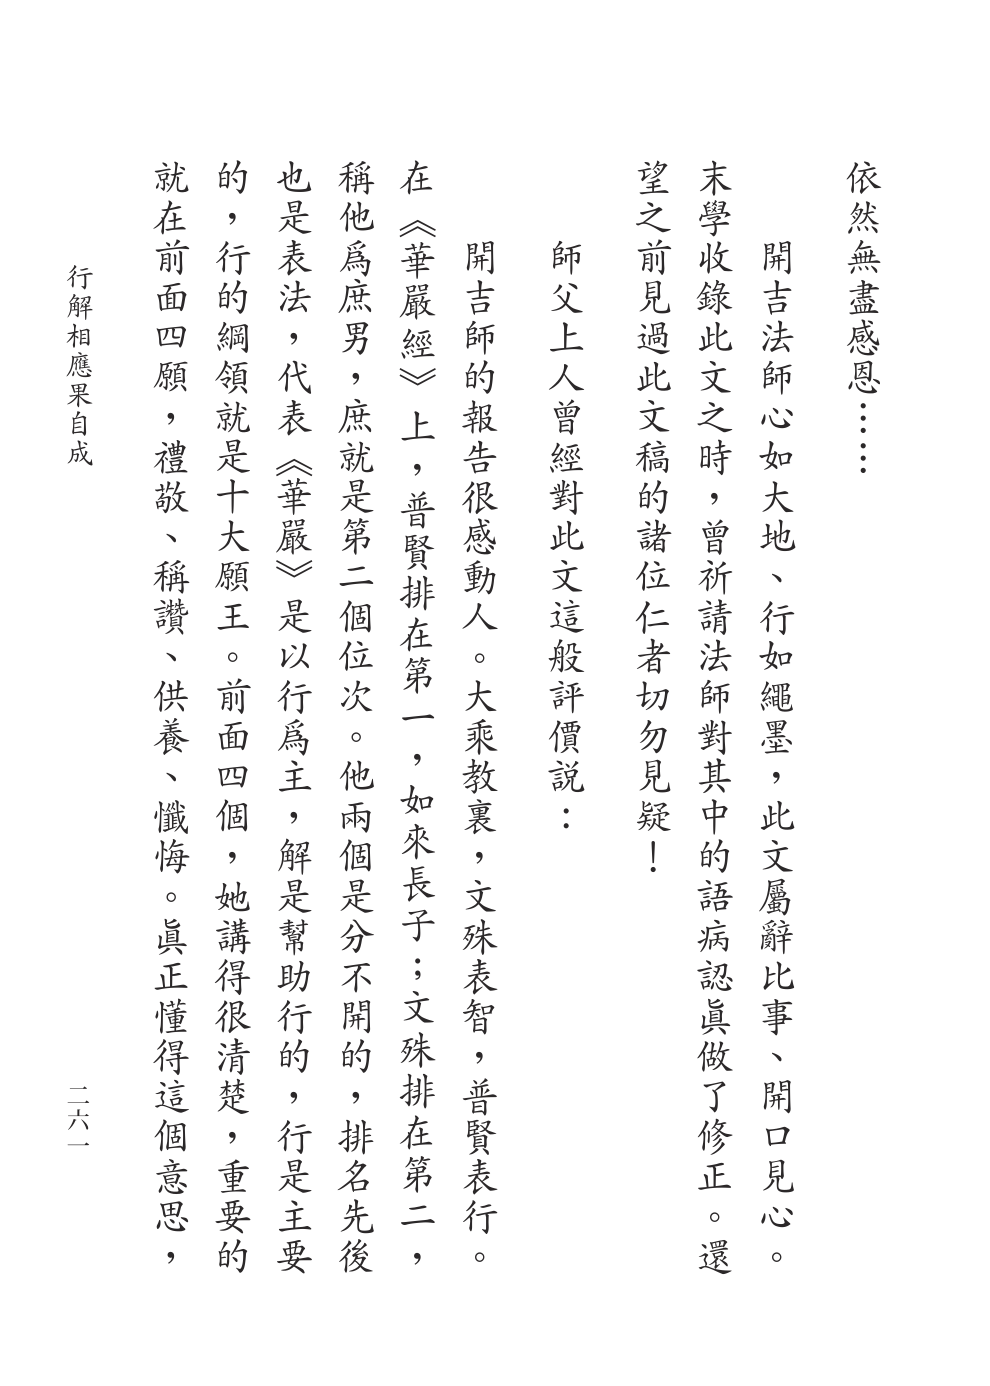 依然無盡感恩……
開吉法師心如大地、行如繩墨，此文屬辭比事、開口見心。
末學收錄此文之時，曾祈請法師對其中的語病認眞做了修正。還
望之前見過此文稿的諸位仁者切勿見疑！
師父上人曾經對此文這般評價説：
開吉師的報告很感動人。大乘教裏，文殊表智，普賢表行。
在《華嚴經》上，普賢排在第一，如來長子；文殊排在第二，
稱他爲庶男，庶就是第二個位次。他兩個是分不開的，排名先後
也是表法，代表《華嚴》是以行爲主，解是幫助行的，行是主要
的，行的綱領就是十大願王。前面四個，她講得很清楚，重要的
就在前面四願，禮敬、稱讚、供養、懺悔。眞正懂得這個意思，
行解相應果自成
二六一